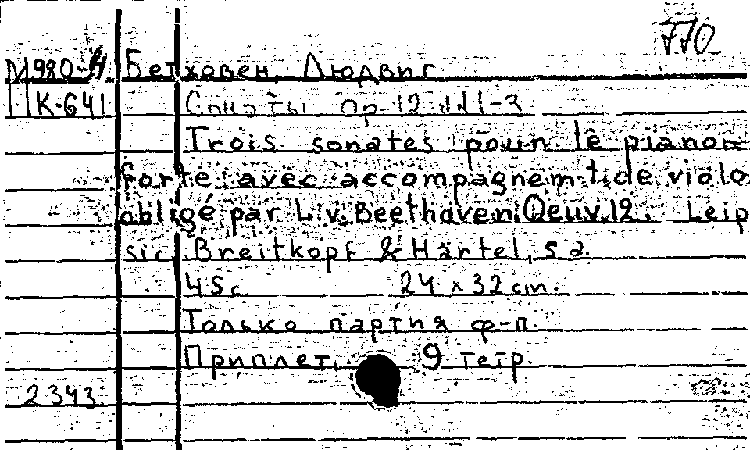 770
М980-Н Бетховен, Людвиг
К-641 Сонаты ор. 12 №1-3
Trois sonates pour le piano-
forte avec accompagnem-t. de violo
obligé par L.v. Beethaven. Oeuv. 12. Leip
sic, Breitkopf & Härtel, s a.
45 с 24 x 32 cm.
Только партия ф-п.
Приплет. 9 тетр
2343